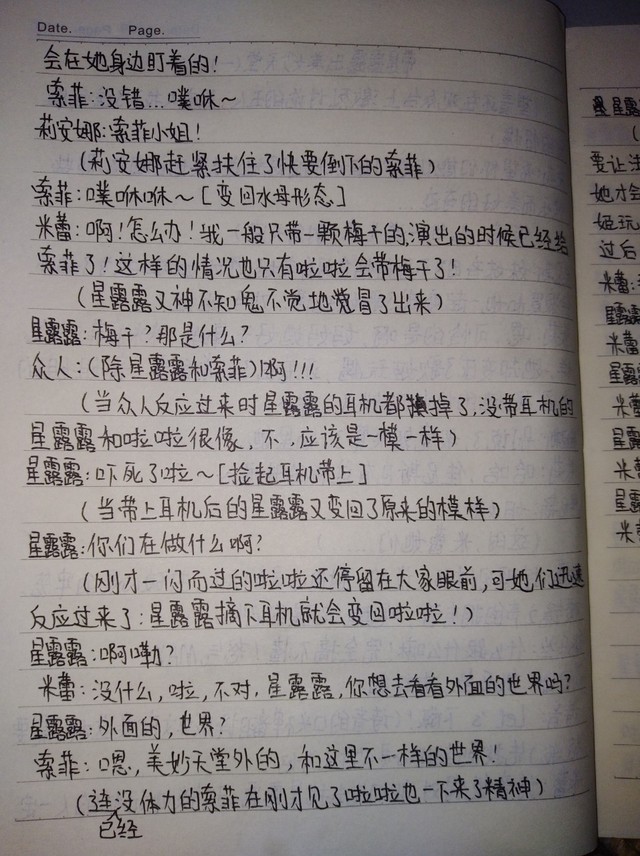 Date. Page.
会在她身边盯着的!
索菲:没错...噗咻~
莉安娜:索菲小姐!
(莉安娜赶紧扶住了快要倒下的索菲)
索菲:噗咻咻~[变回水母形态]
米蕾:啊!怎么办!我一般只带一颗梅干的,演出的时候已经给
索菲了!这样的情况也只有啦啦会带梅干了!
(星露露又神不知鬼不觉地冒了出来)
星露露:梅干?那是什么?
众人:(除星露露和索菲)啊!!!
(当众人反应过来时星露露的耳机都掉了,没带耳机的
星露露和啦啦很像,不,应该是一模一样)
星露露:吓死了啦~[捡起耳机带上]
(当带上耳机后的星露露又变回了原来的模样)
星露露:你们在做什么啊?
(刚才一闪而过的啦啦还停留在大家眼前,可她们迅速
反应过来了:星露露摘下耳机就会变回啦啦!)
星露露:啊嘞?
米蕾:没什么,啦,不对,星露露,你想去看看外面的世界吗?
星露露:外面的,世界?
索菲:嗯,美妙天堂外的,和这里不一样的世界!
(连已经没体力的索菲在刚才见了啦啦也一下来了精神)
星露露
(
要让
她才会
姬玩
过后
米蕾:
星露露
米蕾
星露
米蕾
星露露
米蕾
星露
米蕾